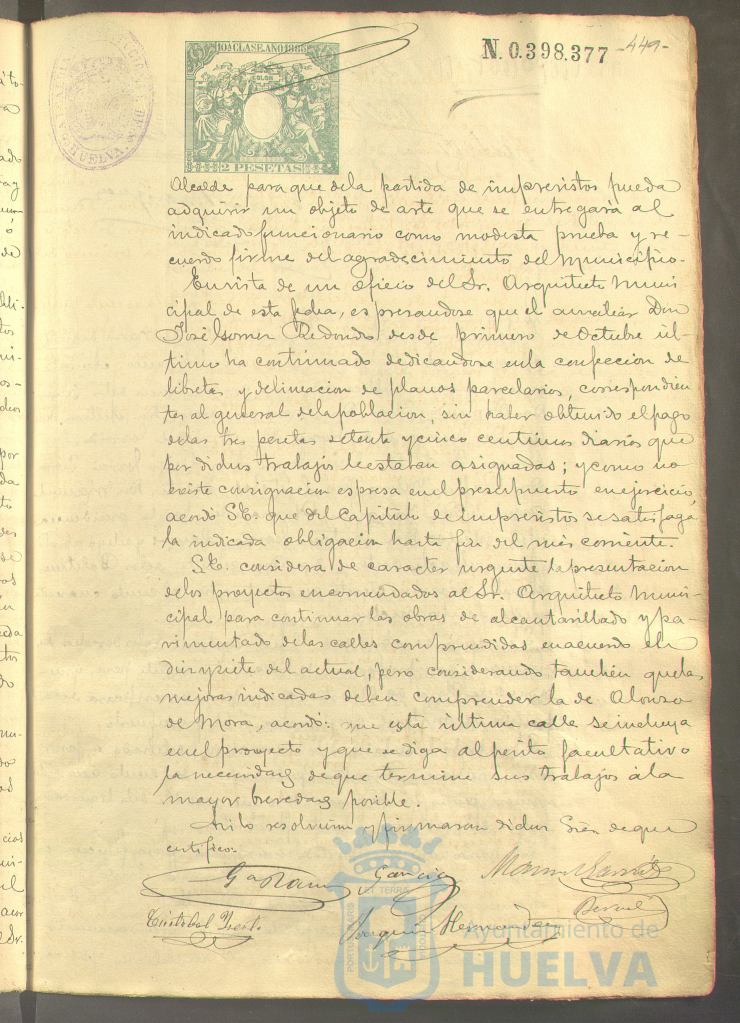 10ª CLASE. AÑO 1886
COLON
2 PESETAS
HUELVA
N. 0.398.377
-441-
Alcalde para que de la partida de imprevistos pueda
adquirir un objeto de arte que se entregará al
indicado funcionario como modesta prueba y re-
cuerdo firme del agradecimiento del Municipio.
En vista de un oficio del Sr. Arquitecto Muni-
cipal de esta fecha, espresandose que el auxiliar Don
José Redondo desde primero de Octubre úl-
timo ha continuado dedicandose en la confeccion de
libretas y delineacion de planos parcelarios, correspondien
tes al general de la poblacion, sin haber obtenido el pago
de las tres pesetas setenta y cinco centimos diarios que
por dichos trabajos le estaban asignadas; y como no
existe consignacion espresa en el presupuesto en ejercicio,
acordó S.E. que del Capitulo de imprevistos se satisfaga
la indicada obligacion hasta fin del mes corriente.
S.E. considera de caracter urgente la presentacion
de los proyectos encomendados al Sr. Arquitecto Muni-
cipal para continuar las obras de alcantarillado y pa-
vimentado de las calles comprendidas en acuerdo del
diez y siete del actual, pero considerando tambien que las
mejoras indicadas deben comprender la de Alonso
de Mora, acordó: que esta última calle se incluya
en el proyecto y que se diga al perito facultativo
la necesidad de que termine sus trabajos á la
mayor brevedad posible.
Asi lo resolvieron y firmaron dichos Sres de que
certifico:
Garcia
Joaquin Hernandez
Ayuntamiento de
HUELVA